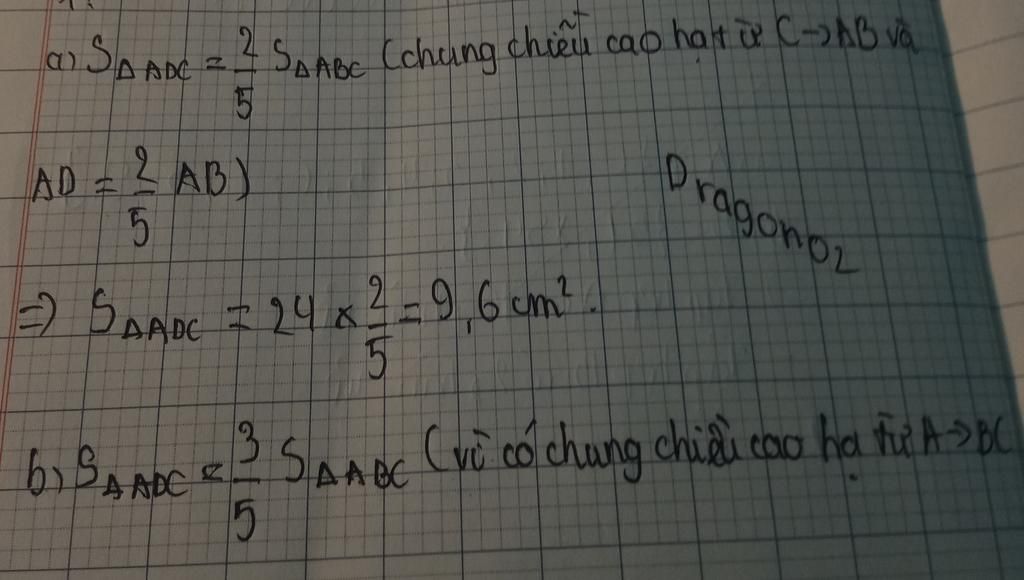 a) S△ADC = 2/5 S△ABC (chung chiều cao hạ từ C→AB và
AD = 2/5 AB)
Dragono2
⇒ S△ADC = 24 × 2/5 = 9,6 cm².
b) S△ADC = 3/5 S△ABC (vì có chung chiều cao hạ từ A→BC